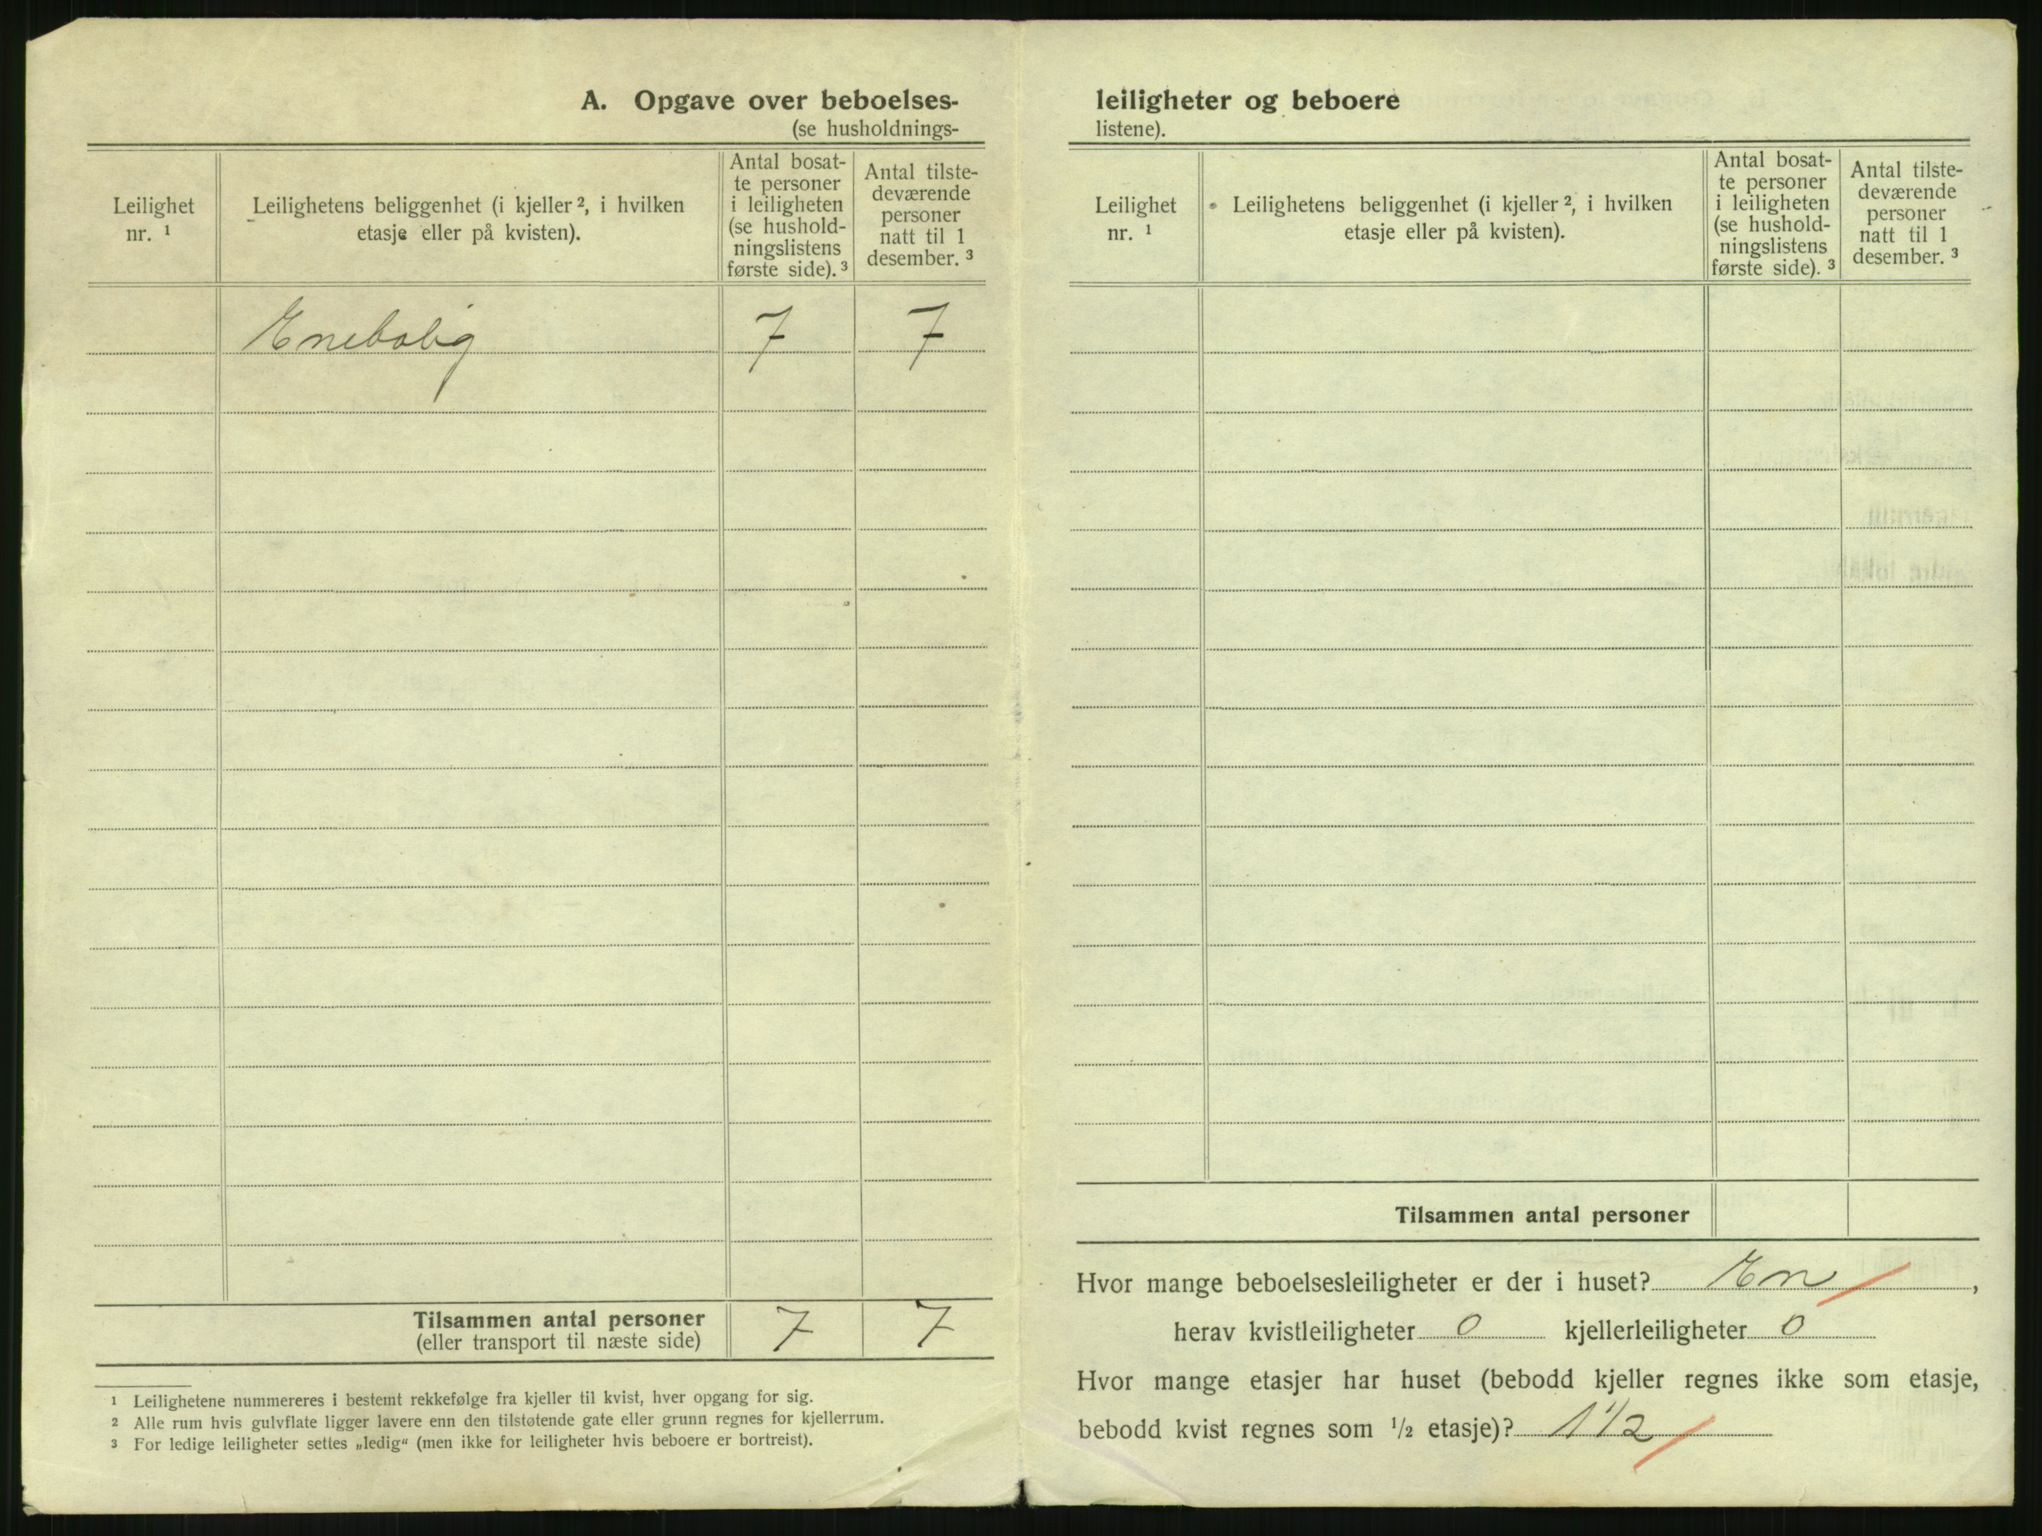 A. Opgave over beboelses-
(se husholdnings-
Leilighet nr. ¹
Leilighetens beliggenhet (i kjeller ², i hvilken
etasje eller på kvisten).
Antal bosat-
te personer
i leiligheten
(se hushold-
ningslistens
første side). ³
Antal tilste-
deværende
personer
natt til 1
desember. ³
Enebolig 7 7
Tilsammen antal personer 7 7
(eller transport til næste side)
¹ Leilighetene nummereres i bestemt rekkefølge fra kjeller til kvist, hver opgang for sig.
² Alle rum hvis gulvflate ligger lavere enn den tilstøtende gate eller grunn regnes for kjellerrum.
³ For ledige leiligheter settes „ledig“ (men ikke for leiligheter hvis beboere er bortreist).
leiligheter og beboere
listene).
Leilighet nr. ¹
Leilighetens beliggenhet (i kjeller ², i hvilken
etasje eller på kvisten).
Antal bosat-
te personer
i leiligheten
(se hushold-
ningslistens
første side). ³
Antal tilste-
deværende
personer
natt til 1
desember. ³
Tilsammen antal personer
Hvor mange beboelsesleiligheter er der i huset? En ,
herav kvistleiligheter 0 kjellerleiligheter 0
Hvor mange etasjer har huset (bebodd kjeller regnes ikke som etasje,
bebodd kvist regnes som ½ etasje)? 1 1/2